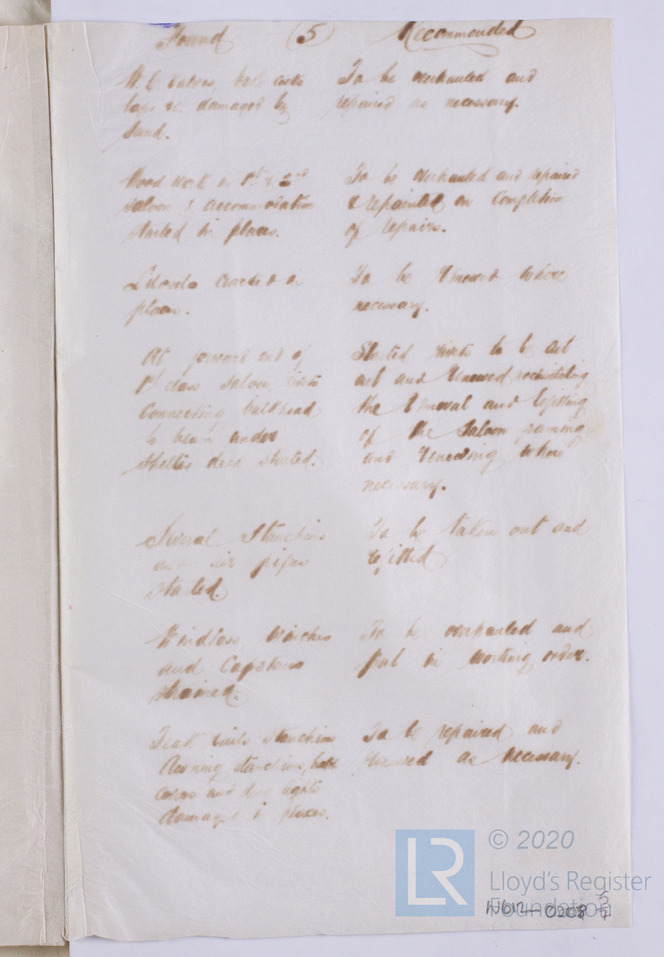 Found (5) Recommended
W. C. valves, bath cocks To be overhauled and
taps &c. damaged by repaired as necessary.
sand.
Wood work in 1st & 2nd To be overhauled and repaired
saloon & accommodation & repainted on completion
started in places. of repairs.
cracked in To be renewed where
places. necessary.
At forward end of Started rivets to be cut
1st class saloon rivets out and renewed necessitating
connecting bulkhead the removal and refitting
to beam under of the saloon framing
shelter deck started. and renewing where
necessary.
Several stanchions To be taken out and
and air pipes refitted
started.
Windlass, winches To be overhauled and
and capstans put in working order.
strained.
Teak rails stanchions To be repaired and
awning stanchions, renewed as necessary.
covers and lights
damaged in places.
© 2020
LR
Lloyd's Register
Foundation